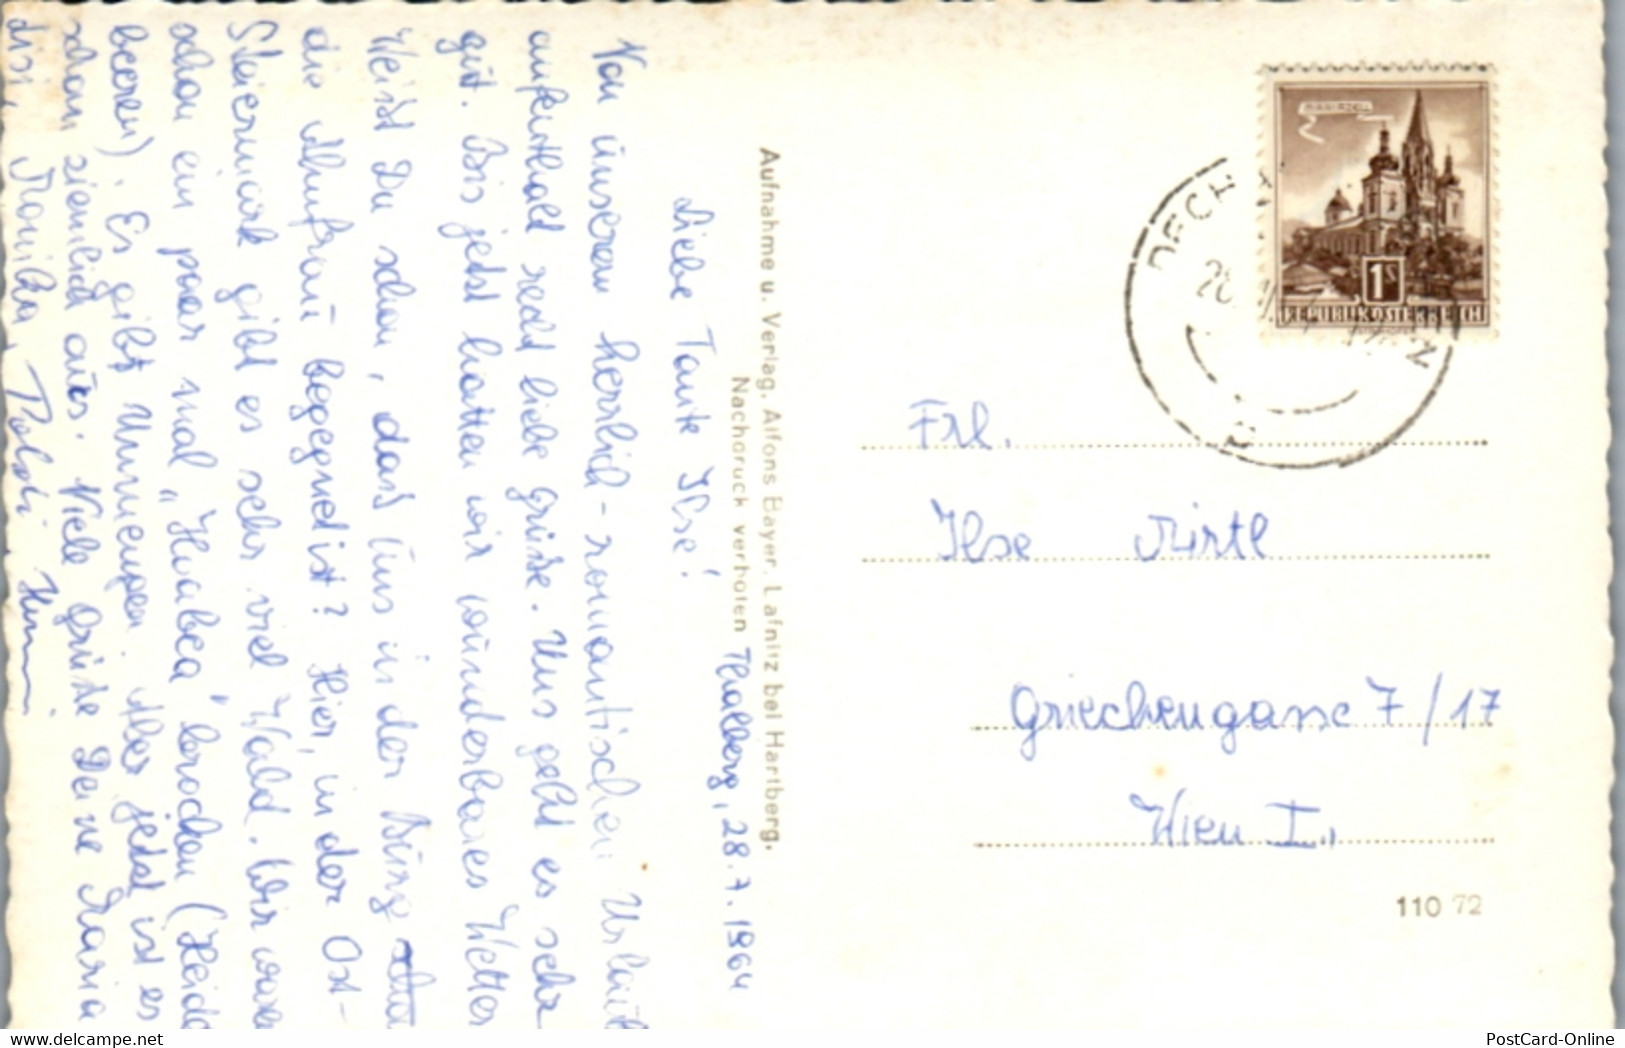 Thalberg, 28.7.1964
Liebe Tante Ilse!
Von unserem herrlich-romantischen Urlaub
aufenthalt recht liebe Grüsse. Uns geht es sehr
gut. Bis jetzt hatten wir wunderbares Wetter
Weist Du schon, dass uns in der Burg
die Ahnfrau begegnet ist? Hier, in der Ost-
Steiermark gibt es sehr viel Wald. Wir waren
schon ein paar mal „Hwabea" brocken (Heidel
beeren). Es gibt Unmengen. Aber jetzt ist es
schon ziemlich aus. Viele Grüsse Deine Maria
Monika, Poldi
Aufnahme u. Verlag. Alfons Bayer. Lafnitz bei Hartberg.
Nachdruck verboten
MARIAZELL
1S
REPUBLIK ÖSTERREICH
DECH
Frl.
Ilse Nirtl
Griechengasse 7/17
Wien I.,
110 72
PostCard-Online
www.delcampe.net